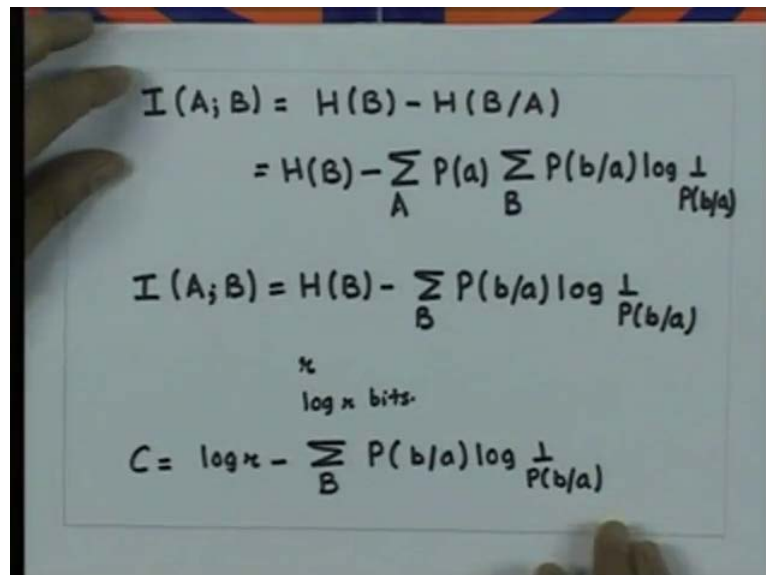 I (A; B) = H(B) - H(B/A)
= H(B) - ∑_A P(a) ∑_B P(b/a) log 1/P(b/a)
I (A; B) = H(B) - ∑_B P(b/a) log 1/P(b/a)
r
log r bits.
C = log r - ∑_B P(b/a) log 1/P(b/a)